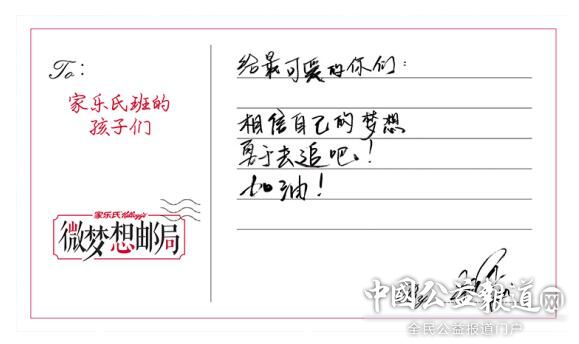 To:
家乐氏班的
孩子们
家乐氏 Kellogg's
微梦想邮局
给最可爱的你们:
相信自己的梦想
勇于去追吧!
加油!
中國公益報道网
全民公益报道门户